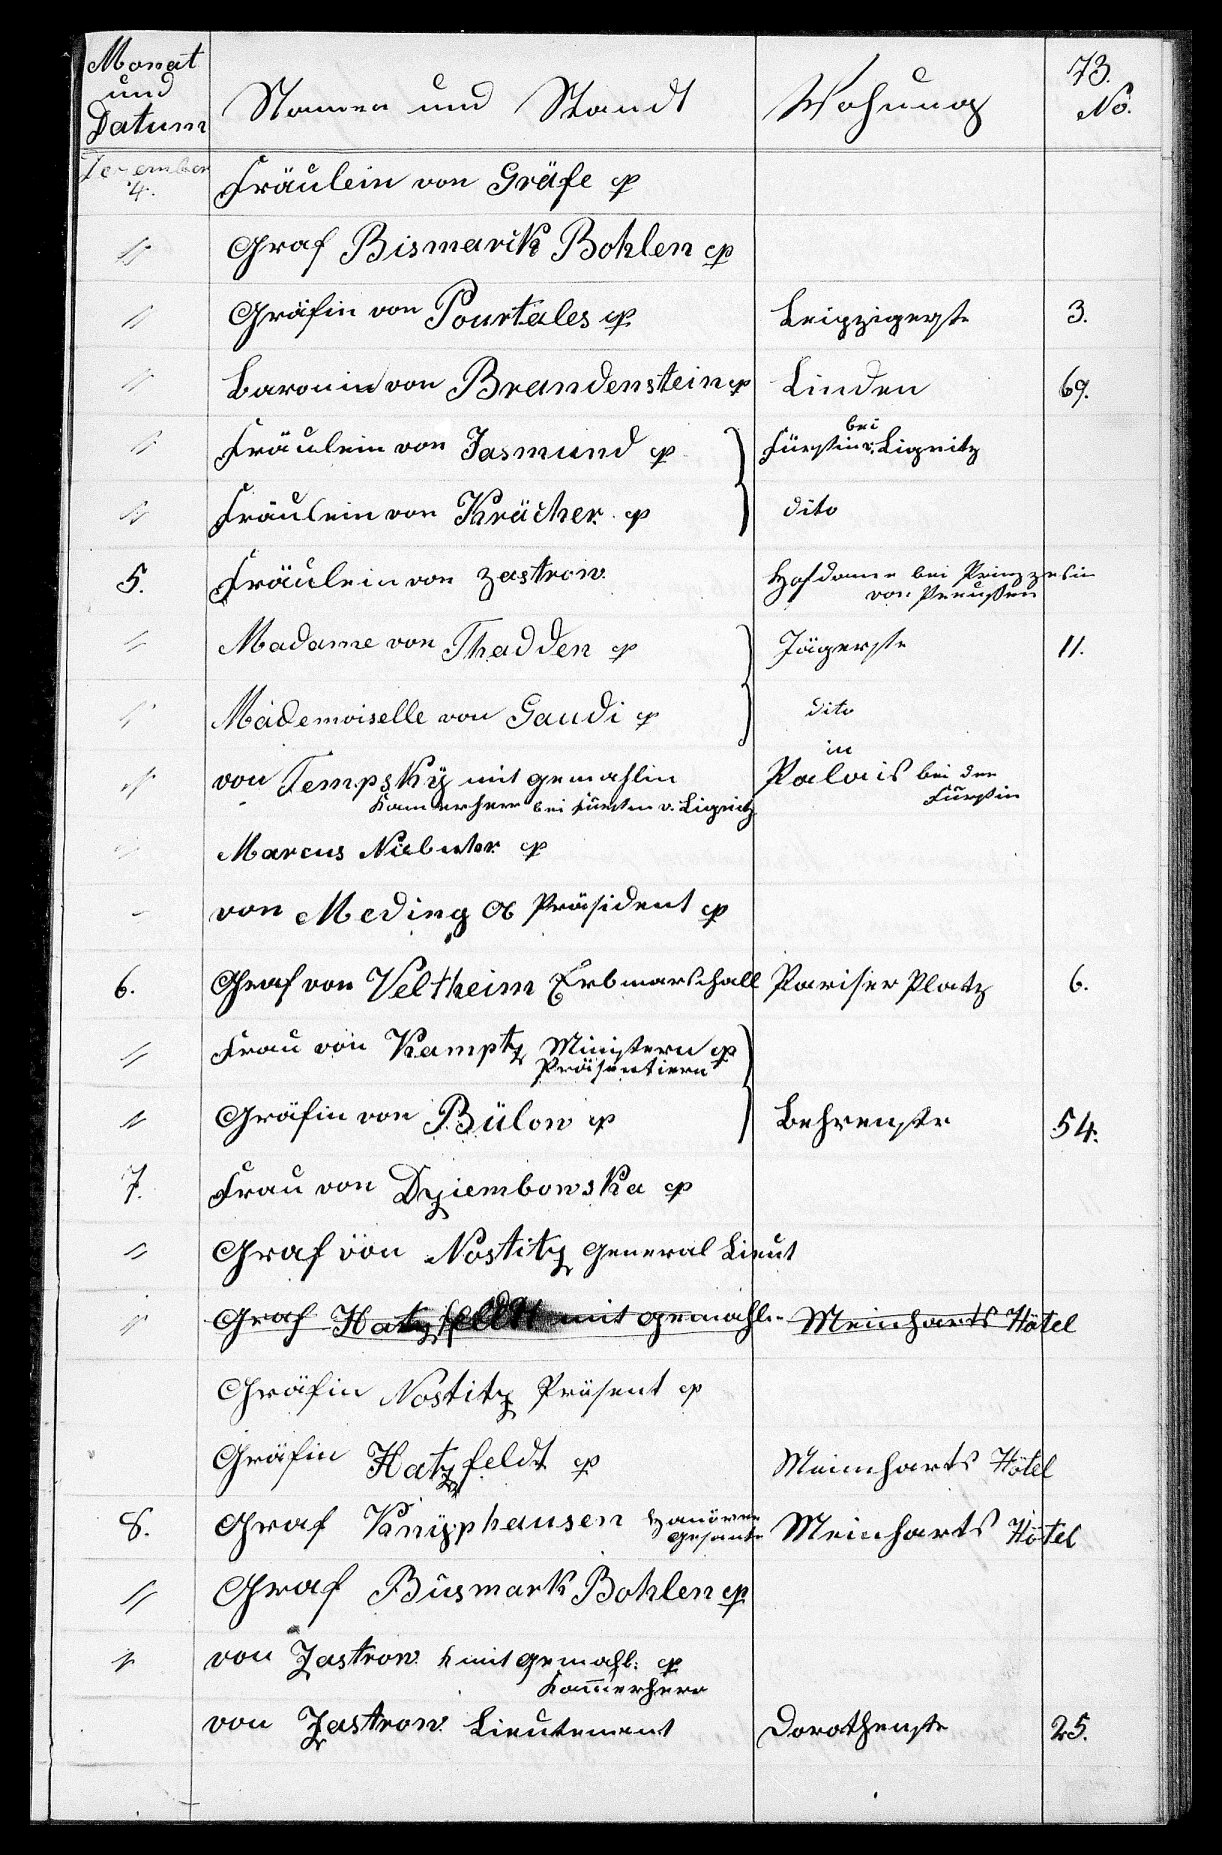 73.
Monat und Datum Namen und Standt Wohnung No.
Dezember
4. Fräulein von Gräfe cp
" Graf Bismarck Bohlen cp
" Gräfin von Pourtales cp Leipzigerstr 3.
" Baronin von Brandenstein cp Linden 69.
bei
" Fräulein von Jasmund cp Fürstin v. Lignitz
" Fräulein von Kröcher cp dito
5. Fräulein von Zastrow Hofdame bei Prinzzesin
von Preußen
" Madame von Thadden cp Jägerstr 11.
" Mademoiselle von Gaudi cp dito
in
" von Tempsky mit gemahlin Palais bei der
Kamerherr bei Fürsten v. Lignitz Fürstin
" Marcus Niebuhr cp
" von Meding Ob Präsident cp
6. Graf von Veltheim Erbmarschall Pariser Platz 6.
" Frau von Kamptz Ministern cp
Präsentiren
" Gräfin von Bülow cp Behrenstr 54.
7. Frau von Dziembowska cp
" Graf von Nostitz General Lieut
" Graf Hatzfeldt mit gemahlin Meinharts Hôtel
Gräfin Nostitz Präsent cp
Gräfin Hatzfeldt cp Meinharts Hôtel
8. Graf Knÿphausen Hanöver Meinharts Hôtel
gesante
" Graf Bismark Bohlen cp
" von Zastrow mit gemahl: cp
Kam̄erherr
von Zastrow Lieutenant Dorothenstr 25.